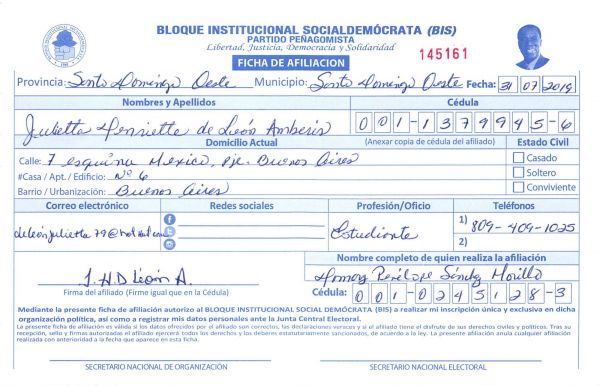 BLOQUE INSTITUCIONAL SOCIALDEMÓCRATA (BIS)
PARTIDO PEÑAGOMISTA
Libertad, Justicia, Democracia y Solidaridad
FICHA DE AFILIACION
145161
Provincia: Santo Domingo Oeste Municipio: Santo Domingo Oeste Fecha: 31 07 2019
Nombres y Apellidos Cédula
Julietta Henriette de León Amberis 001-1379945-6
Domicilio Actual (Anexar copia de cédula del afiliado) Estado Civil
Calle: 7 esquina Mexico, Pje. Buenos Aires Casado
#Casa / Apt. / Edificio: Nº 6 Soltero
Barrio / Urbanización: Buenos Aires Conviviente
Correo electrónico Redes sociales Profesión/Oficio Teléfonos
deleónjulietta79@hotmail.com Estudiante 1) 809-409-1025
2)
Nombre completo de quien realiza la afiliación
J. H. D León A. Penélope Sánchez Morillo
Firma del afiliado (Firme igual que en la Cédula) Cédula: 001-0245128-3
Mediante la presente ficha de afiliación autorizo al BLOQUE INSTITUCIONAL SOCIAL DEMÓCRATA (BIS) a realizar mi inscripción única y exclusiva en dicha
organización política, así como a registrar mis datos personales ante la Junta Central Electoral.
La presente ficha de afiliación es válida si los datos ofrecidos por el afiliado son correctos, las declaraciones veraces y si el afiliado tiene el disfrute de sus derechos civiles y políticos. Tras su
recepción, sello y firmas autorizadas el afiliado ejercerá todos los derechos y los deberes estatutariamente sancionados, de acuerdo a la ley. La presente afiliación anula cualquier afiliación
realizada con anterioridad a la fecha que aparece en esta ficha.
SECRETARIO NACIONAL DE ORGANIZACIÓN SECRETARIO NACIONAL ELECTORAL